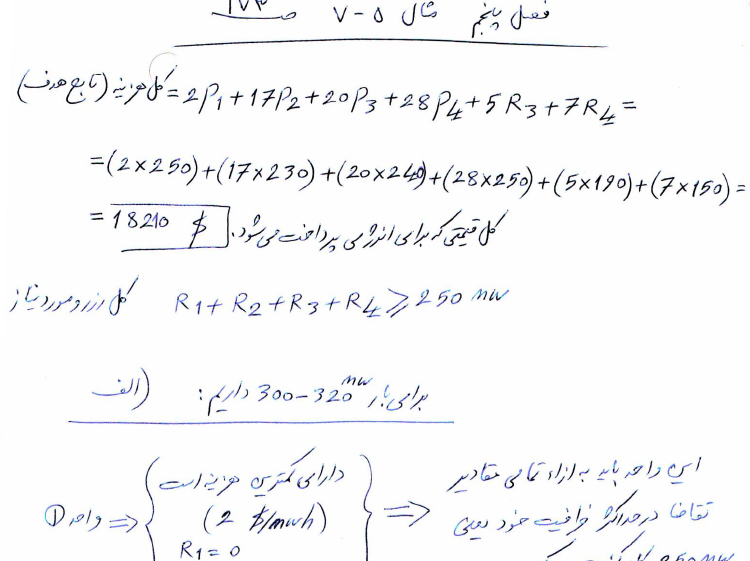 فصل پنجم مثال ۵-۷ ص ۱۷۳
کل هزینه (تابع هدف) = 2P1+17P2+20P3+28P4+5R3+7R4=
=(2×250)+(17×230)+(20×240)+(28×250)+(5×190)+(7×150)=
= 18210 $ کل قیمتی که برای انرژی پرداخت می‌شود.
کل رزرو مورد نیاز R1+R2+R3+R4⩾250 MW
الف) برای بار 300-320 MW داریم:
واحد ① ⇒ { دارای کمترین هزینه است } ⇒ این واحد باید به ازاء تمامی مقادیر
(2 $/mwh) تقاضا در حداکثر ظرفیت خود یعنی
R1=0 250 MW